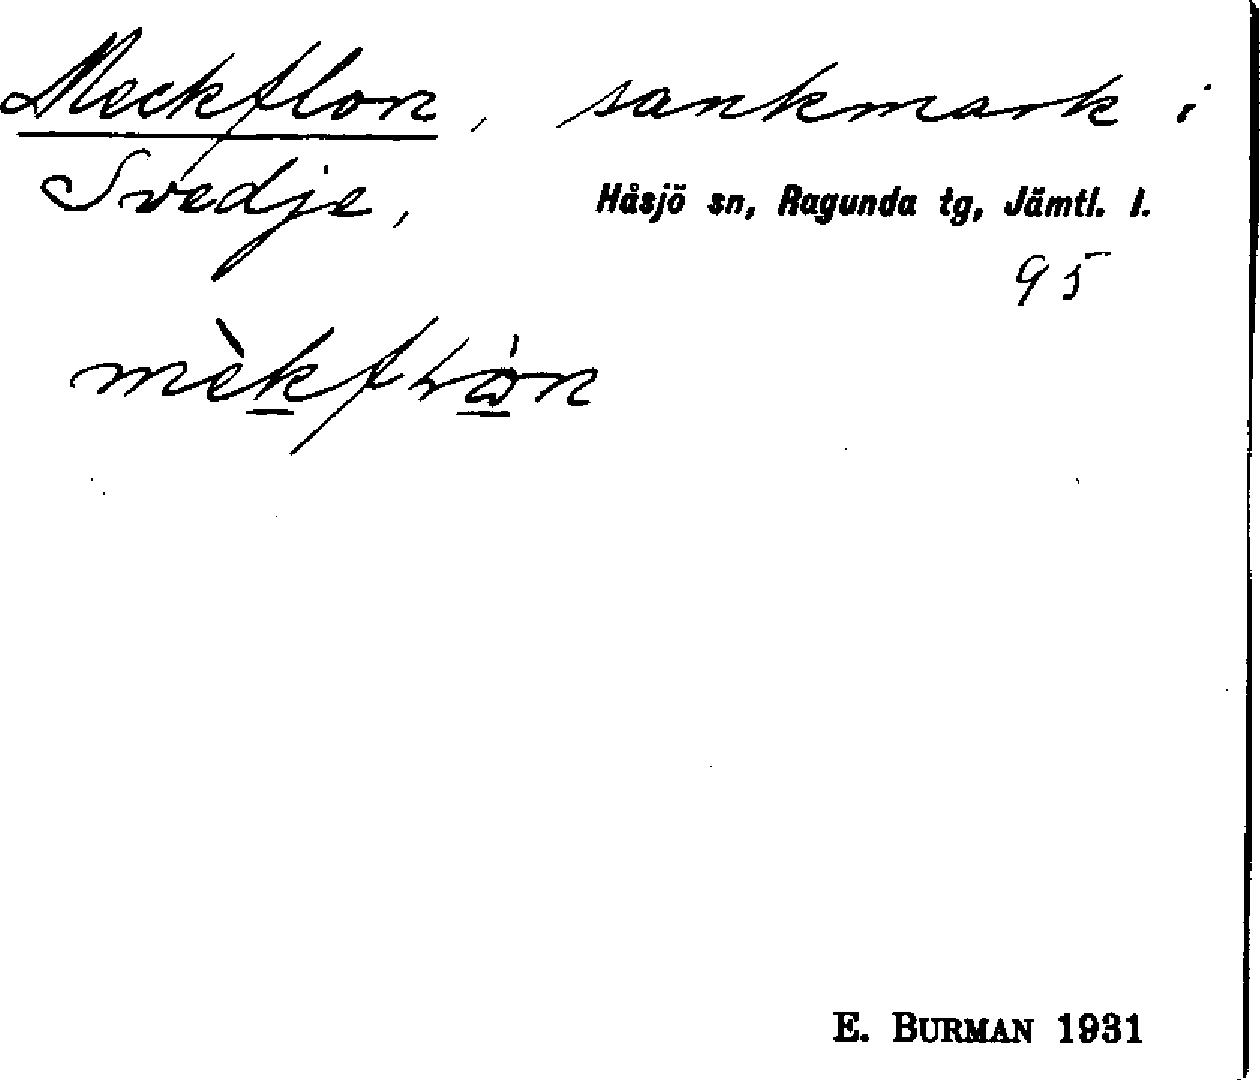 Meckflon, sankmark i
Svedje, Håsjö sn, Ragunda tg, Jämtl. l.
95
E. BURMAN 1931